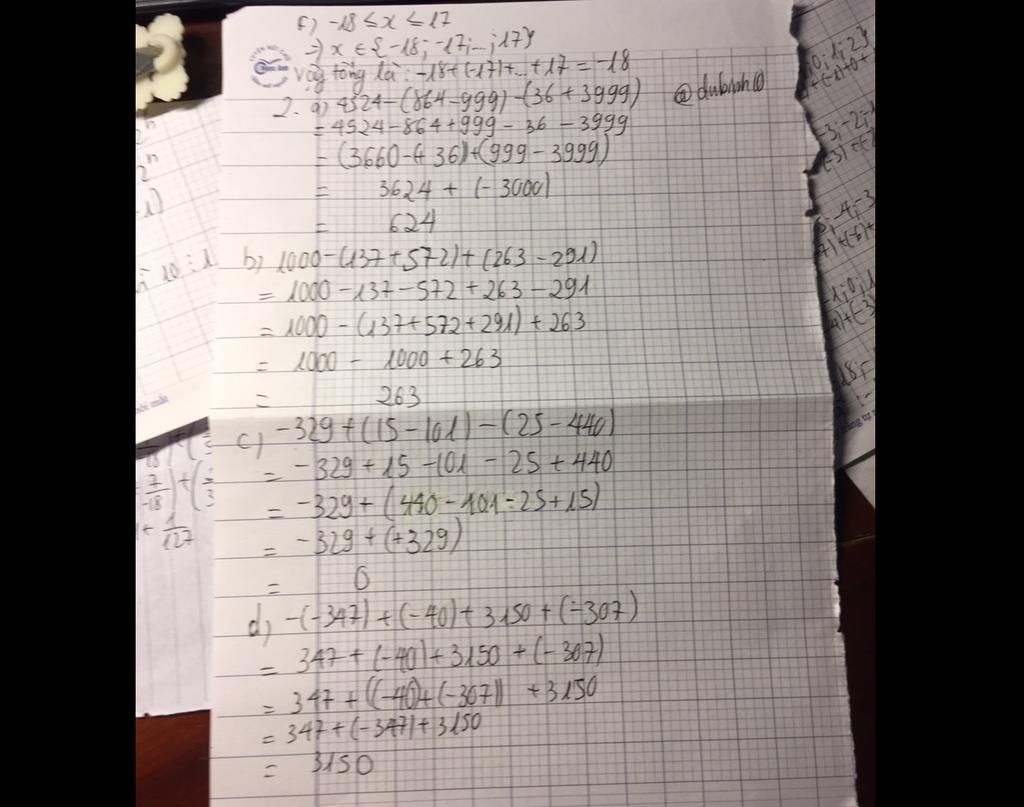 f) -18 ≤ x ≤ 17
=> x ∈ {-18; -17; ...; 17}
vậy tổng là: -18+(-17)+...+17 = -18
2. a) 4524-(864-999)-(36+3999) @dubinh@
= 4524-864+999-36-3999
= (3660-(+36)+(999-3999)
= 3624 + (-3000)
= 624
b) 1000-(137+572)+(263-291)
= 1000-137-572+263-291
= 1000-(137+572+291)+263
= 1000 - 1000 + 263
= 263
c) -329+(15-101)-(25-440)
= -329+15-101-25+440
= -329+(440-101-25+15)
= -329+(+329)
= 0
d) -(-347)+(-40)+3150+(-307)
= 347+(-40)+3150+(-307)
= 347+((-40)+(-307)) +3150
= 347+(-347)+3150
= 3150
7/-18
1/127